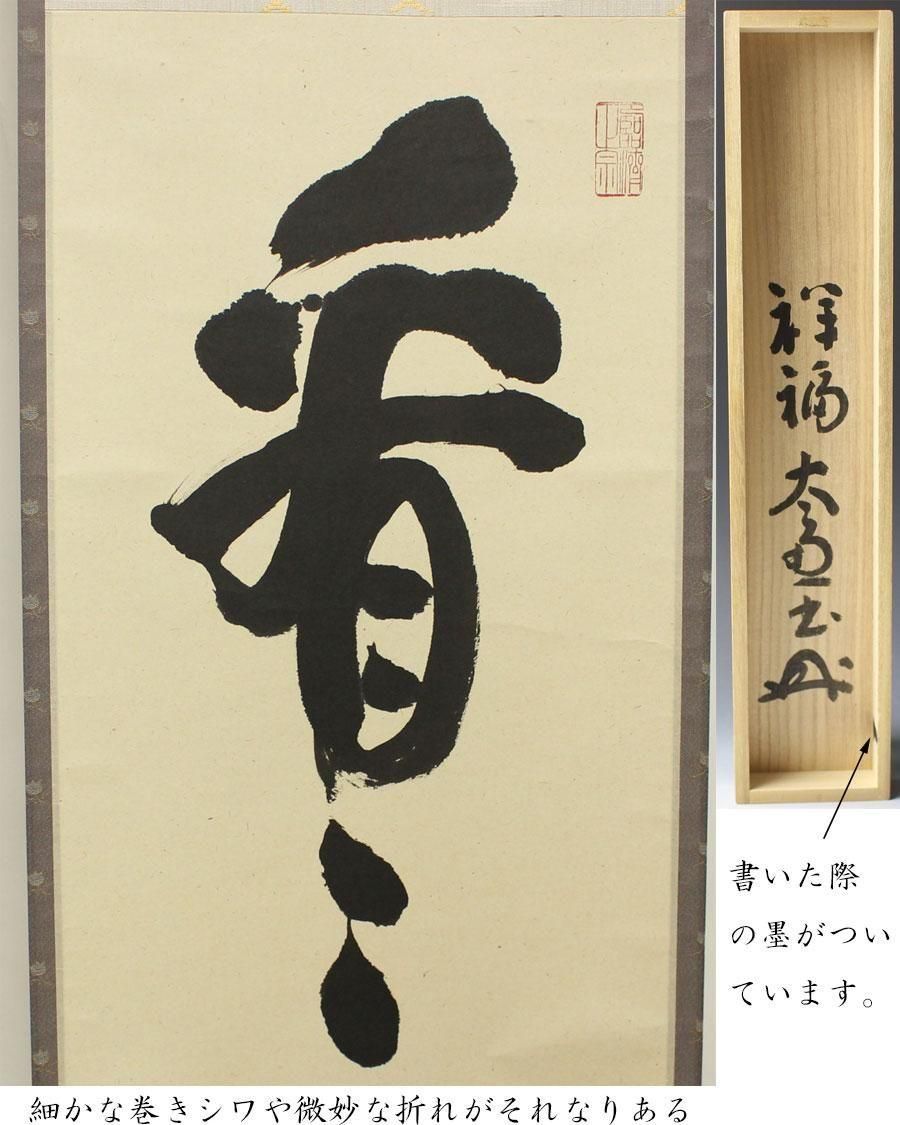 看々
臨濟
正宗
祥福 太通書
書いた際
の墨がつい
ています。
細かな巻きシワや微妙な折れがそれなりある